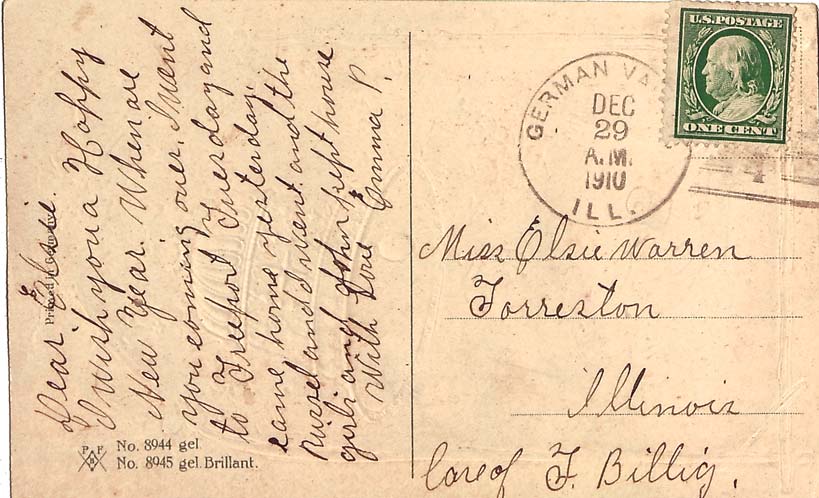 Dear Elsie.
I wish you a Happy
New Year. When are
you coming over. I went
to Freeport Tuesday and
came home yesterday.
Russel and I went and the
girls and John kept house
With Love Emma P.
Printed in
P F B
No. 8944 gel
No. 8945 gel. Brillant.
U.S. POSTAGE
ONE CENT
GERMAN VA
DEC
29
A.M.
1910
ILL.
Miss Elsie Warren
Forreston
Illinois
Care of F. Billig.